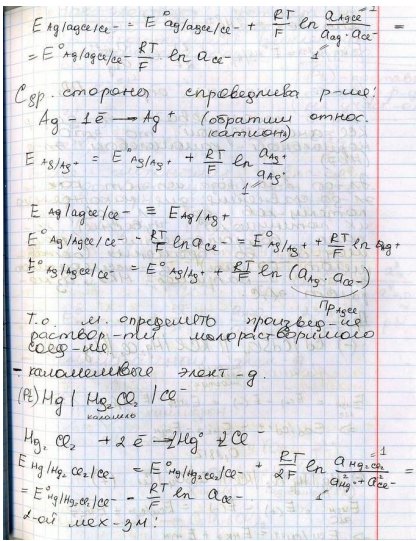 E Ag/AgCl/Cl⁻ = E° Ag/AgCl/Cl⁻ + RT/F ln a AgCl / (a Ag · a Cl⁻) =
= E° Ag/AgCl/Cl⁻ - RT/F · ln a Cl⁻
С др. стороны справедлива р-ие:
Ag - 1ē → Ag⁺ (обратим относ.
катиона)
E Ag/Ag⁺ = E° Ag/Ag⁺ + RT/F ln a Ag⁺ / a Ag
E Ag/AgCl/Cl⁻ ≡ E Ag/Ag⁺
E° Ag/AgCl/Cl⁻ - RT/F ln a Cl⁻ = E° Ag/Ag⁺ + RT/F ln a Ag⁺
E° Ag/AgCl/Cl⁻ = E° Ag/Ag⁺ + RT/F ln (a Ag⁺ · a Cl⁻)
Пр AgCl
Т.о. м. определить произвед-ие
раствор-ти малорастворимого
соед-ие.
- каломелевые элект-д.
(Pt) Hg | Hg₂Cl₂ / Cl⁻
каломель
Hg₂Cl₂ + 2ē → 2Hg° + 2Cl⁻
E Hg/Hg₂Cl₂/Cl⁻ = E° Hg/Hg₂Cl₂/Cl⁻ + RT/2F ln a Hg₂Cl₂ / (a² Hg + a² Cl⁻) =
= E° Hg/Hg₂Cl₂/Cl⁻ - RT/F ln a Cl⁻
2-ой мех-зм: